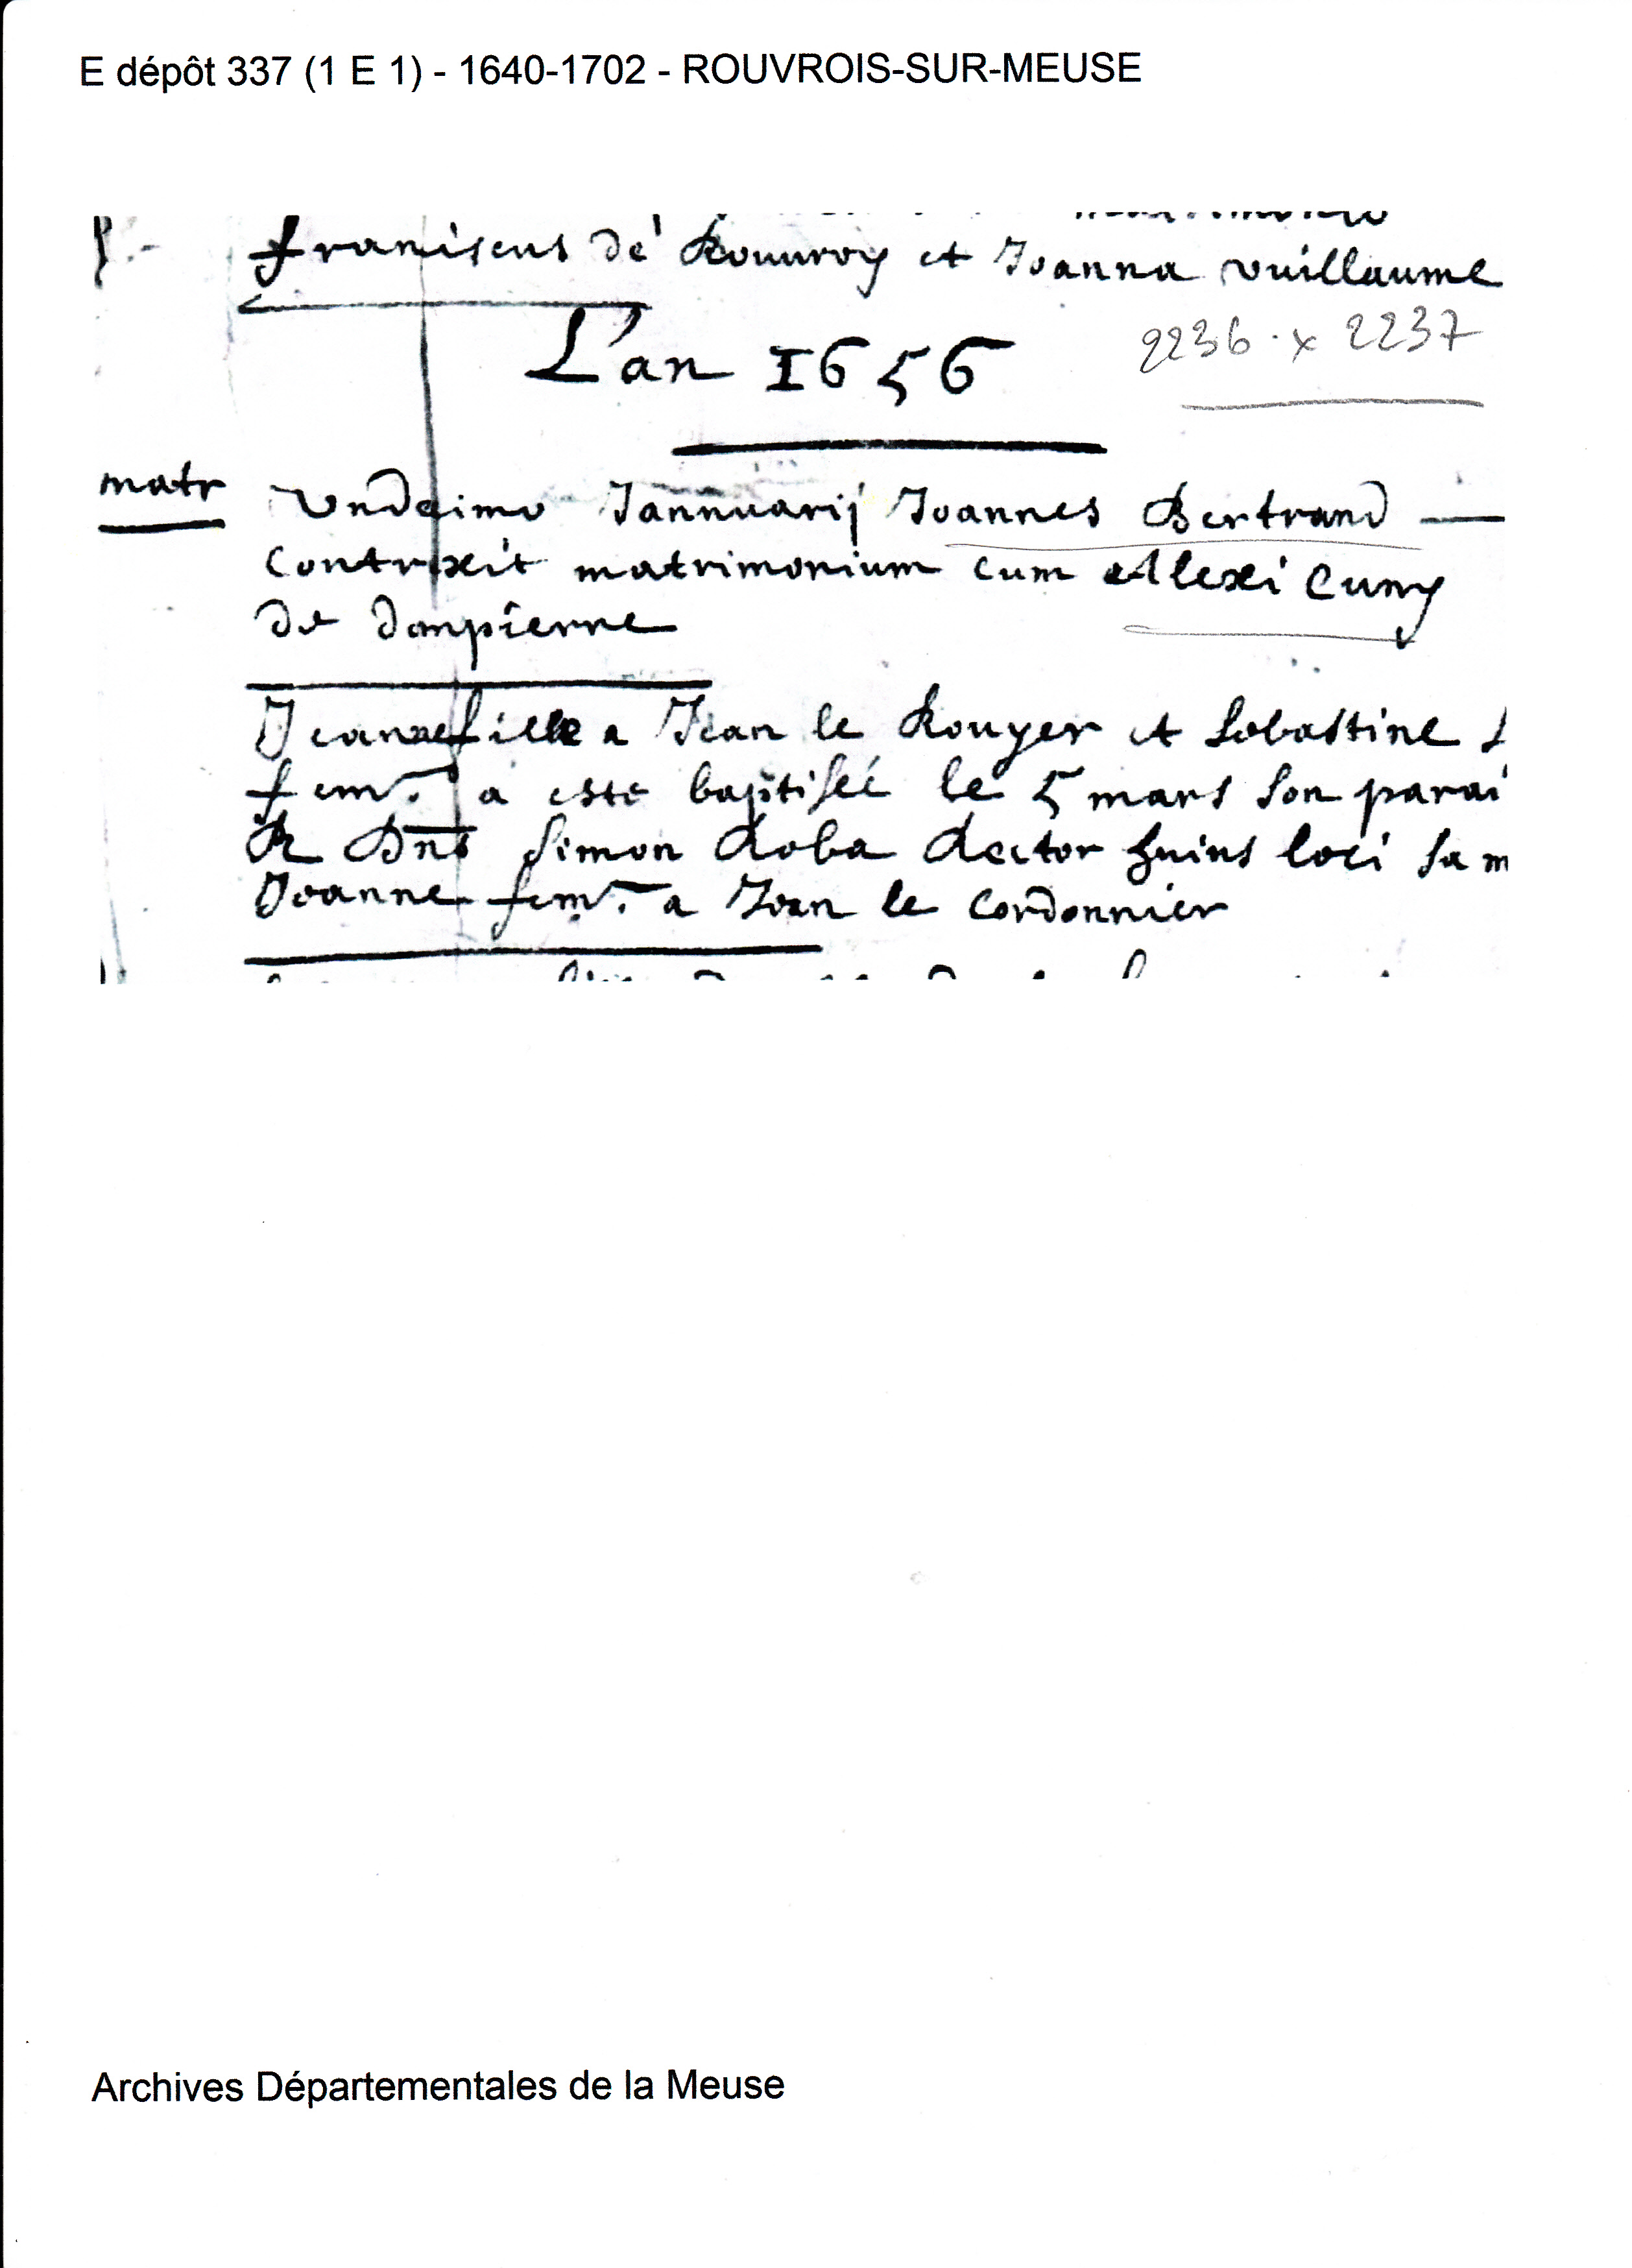 E dépôt 337 (1 E 1) - 1640-1702 - ROUVROIS-SUR-MEUSE
franciscus de Rouuroy et Joanna vuillaume
L'an 1656
2236 x 2237
matr
Undecimo Jannuarij Joannes Bertrand —
Contraxit matrimonium cum Alexi Cuny
de dompierre
Jeanne fille a Jean le Rouyer et Sebastine
fem. a esté baptiseé le 5 mars son parai
R Dns Simon Roba Rector huius loci sa m
Joanne fem. a Jean le Cordonnier
Archives Départementales de la Meuse